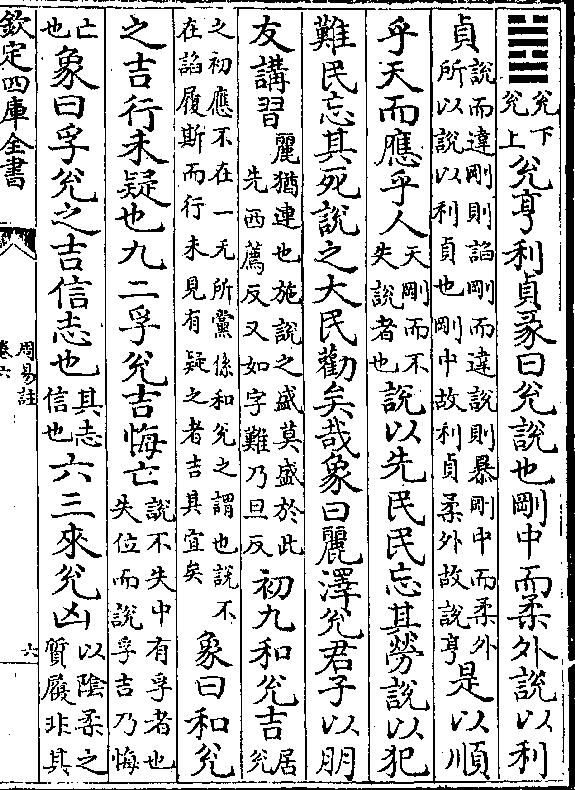 兌下兌上兌亨利貞彖曰兌說也剛中而柔外說以利
貞說而違剛則諂剛而違說則暴剛中而柔外所以說以利貞也剛中故利貞柔外故說亨是以順
乎天而應乎人天剛而不失說者也說以先民民忘其勞說以犯
難民忘其死說之大民勸矣哉象曰麗澤兌君子以朋
友講習麗猶連也施說之盛莫盛於此先西薦反又如字難乃旦反初九和兌吉居兌
之初應不在一无所黨係和兌之謂也說不在諂履斯而行未見有疑之者吉其宜矣象曰和兌
之吉行未疑也九二孚兌吉悔亡說不失中有孚者也失位而說孚吉乃悔
亡也象曰孚兌之吉信志也其志信也六三來兌凶以陰柔之質履非其
欽定四庫全書
周易註
卷六
六